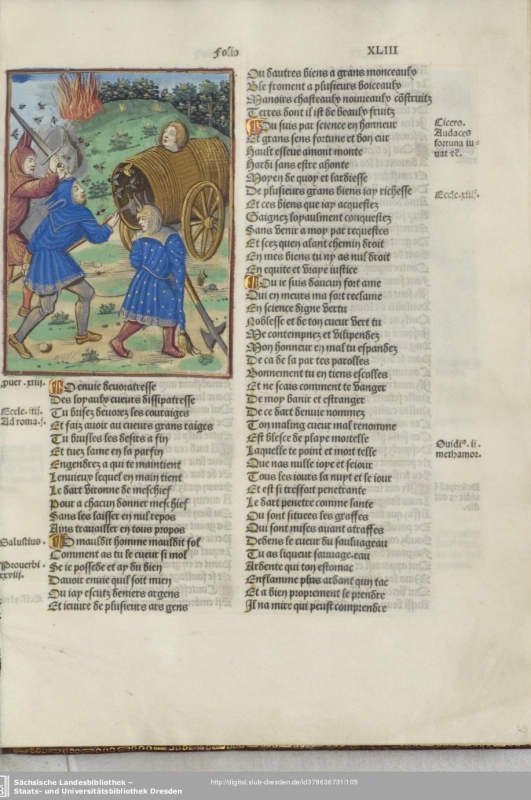 Folio XLIII
puer. xiiii.
Eccle. iii.
Ad roma. i.
Salustius.
Proverbi.
xxviii.
O envie devoratresse
Des loyaulx cueurs dissipatresse
Tu brisez devorez les couraiges
Et faiz avoir au cueurs grans raiges
Tu brusles les desirs a fin
Et tuez lame en la parfin
Engendrez a qui te maintient
Lenvieux lequel en main tient
Le dart vironne de meschief
Pour a chacun donner meschief
Sans les laisser en nul repos
Ains travailler en tous propos
O mauldit homme mauldit fol
Comment as tu le cueur si mol
Se ie possede et ay du bien
Davoir envie quil soit mien
Ou iay escutz deniers argens
Et ieuure de plusieurs ars gens
Ou dautres biens a grans monceaulx
Ble froment a plusieurs boiceaulx
Manoirs chasteaulx nouueaulx cõstruitz
Terres dont il ist de beaulx fruitz
Ou suis par science en honneur
Et grans sens fortune et bon eur
Hault esleue amont monte
Hardi sans estre ahonte
Moyen de quoy et lardiesse
De plusieurs grans biens iay richesse
Et ces biens que iay acquestez
Gaignez loyaulment conquestez
Sans venir a moy par requestes
Et scez quen alant chemin droit
En mes biens tu ny as nul droit
En equite et vraye iustice
Ou ie suis daucun fort ame
Qui en meurs ma fort reclame
En science digne vertu
Noblesse et de ton cueur vert tu
Me contempnez et vilipendez
Mon honneur en mal tu espandez
De ca de la par tes parolles
Bonnement tu en tiens escolles
Et ne scais comment te vanger
De moy banir et estranger
De ce dart denvie nommez
Ton maling cueur mal renomme
Est blesce de playe mortelle
Laquelle te point et mort telle
Que nas nulle ioye et seiour
Tous les iours la nuyt et le iour
Et est si tresfort penetrante
Le dart penetre comme lante
Ou sont situees les graffes
Qui sont mises auant atraffes
Dedens le cueur du sauluageau
Tu as liqueur sauuage eau
Ardente qui ton estomac
Enflamme plus ardant qun tac
Et a bien proprement le prendre
Il na mire qui peust comprendre
Cicero.
Audaces
fortuna iu-
uat ⁊c.
Eccle. xiii.
Ouidiꝰ. ii.
methamor.
Sächsische Landesbibliothek –
Staats- und Universitätsbibliothek Dresden
http://digital.slub-dresden.de/id378636731/105